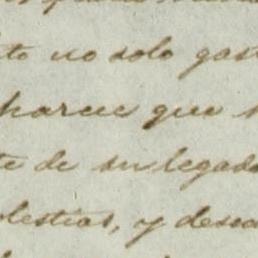 to no solo gas
parece que s
te de su legado
olestias, y desea